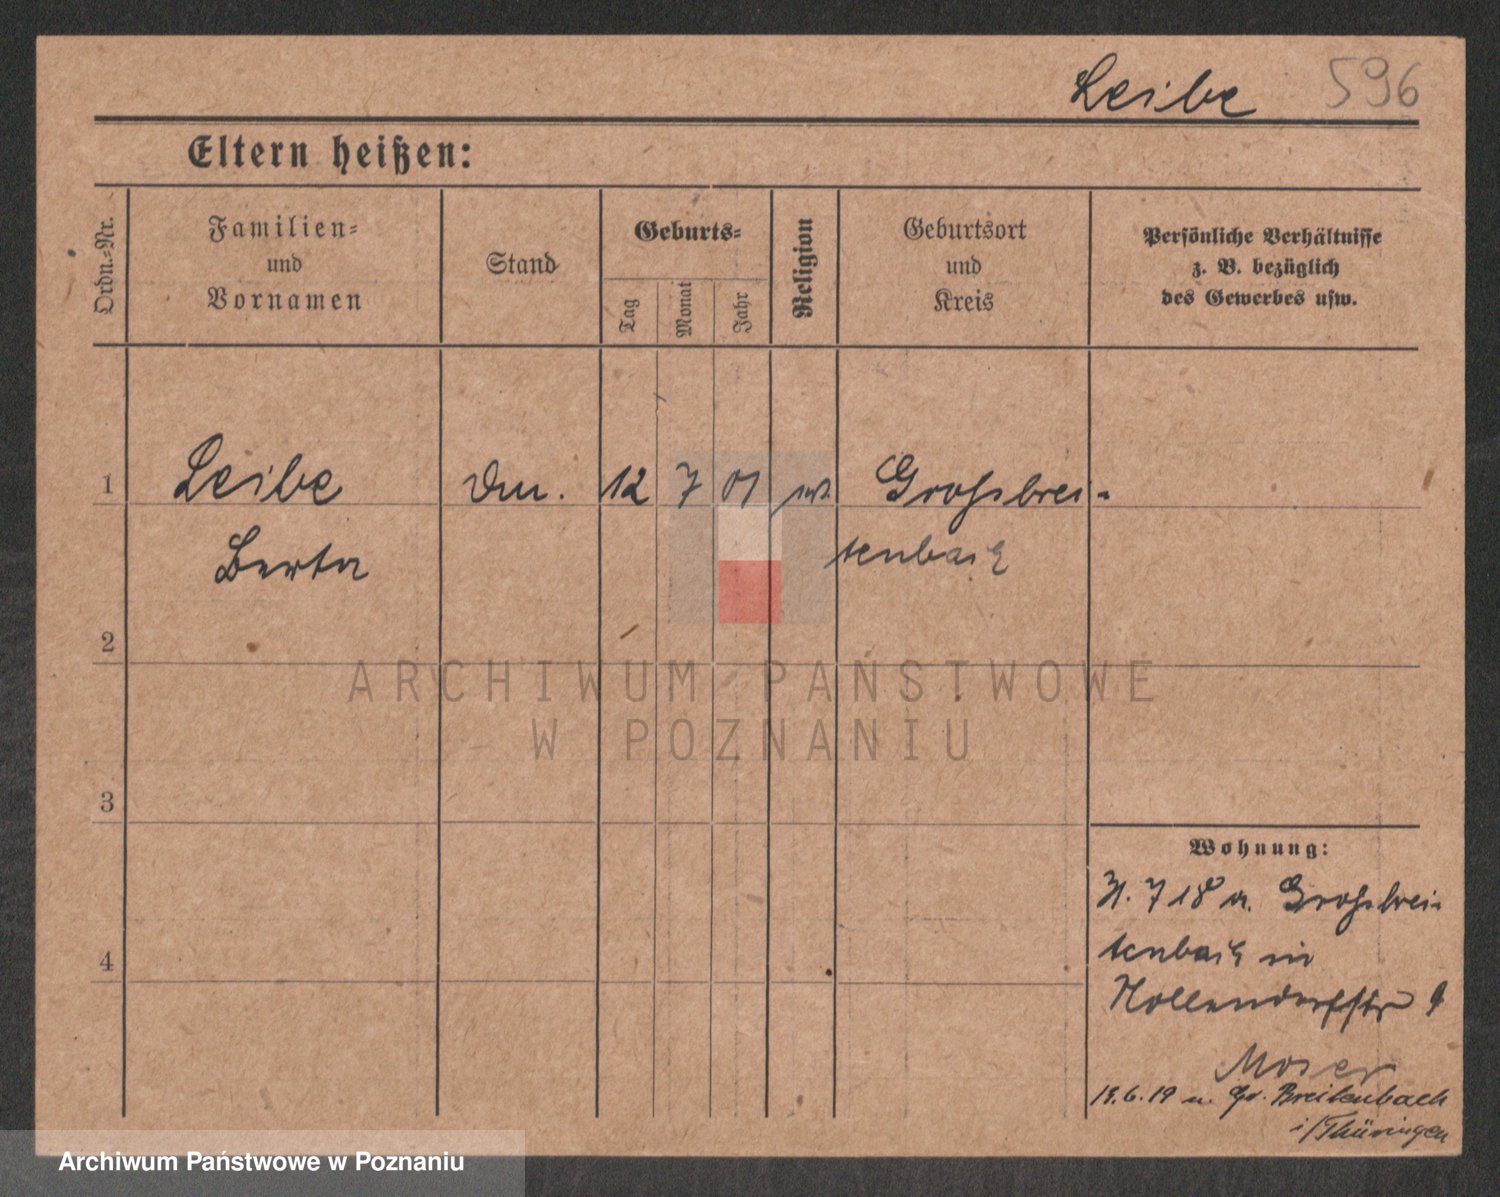 Leibe 596
Eltern heißen:
Ordn.-Nr.
Familien-
und
Vornamen
Stand
Geburts-
Tag
Monat
Jahr
Religion
Geburtsort
und
Kreis
Persönliche Verhältnisse
z. B. bezüglich
des Gewerbes usw.
1 Leibe 12 7 01 Grossbrei-
Berta tenbach
2
3
4
ARCHIWUM PAŃSTWOWE
W POZNANIU
Wohnung:
7 18 a. Grossbrei-
tenbach in
Nollendorfstr 9
Moser
19.6.19 n. Gr. Breitenbach
i/Thüringen
Archiwum Państwowe w Poznaniu